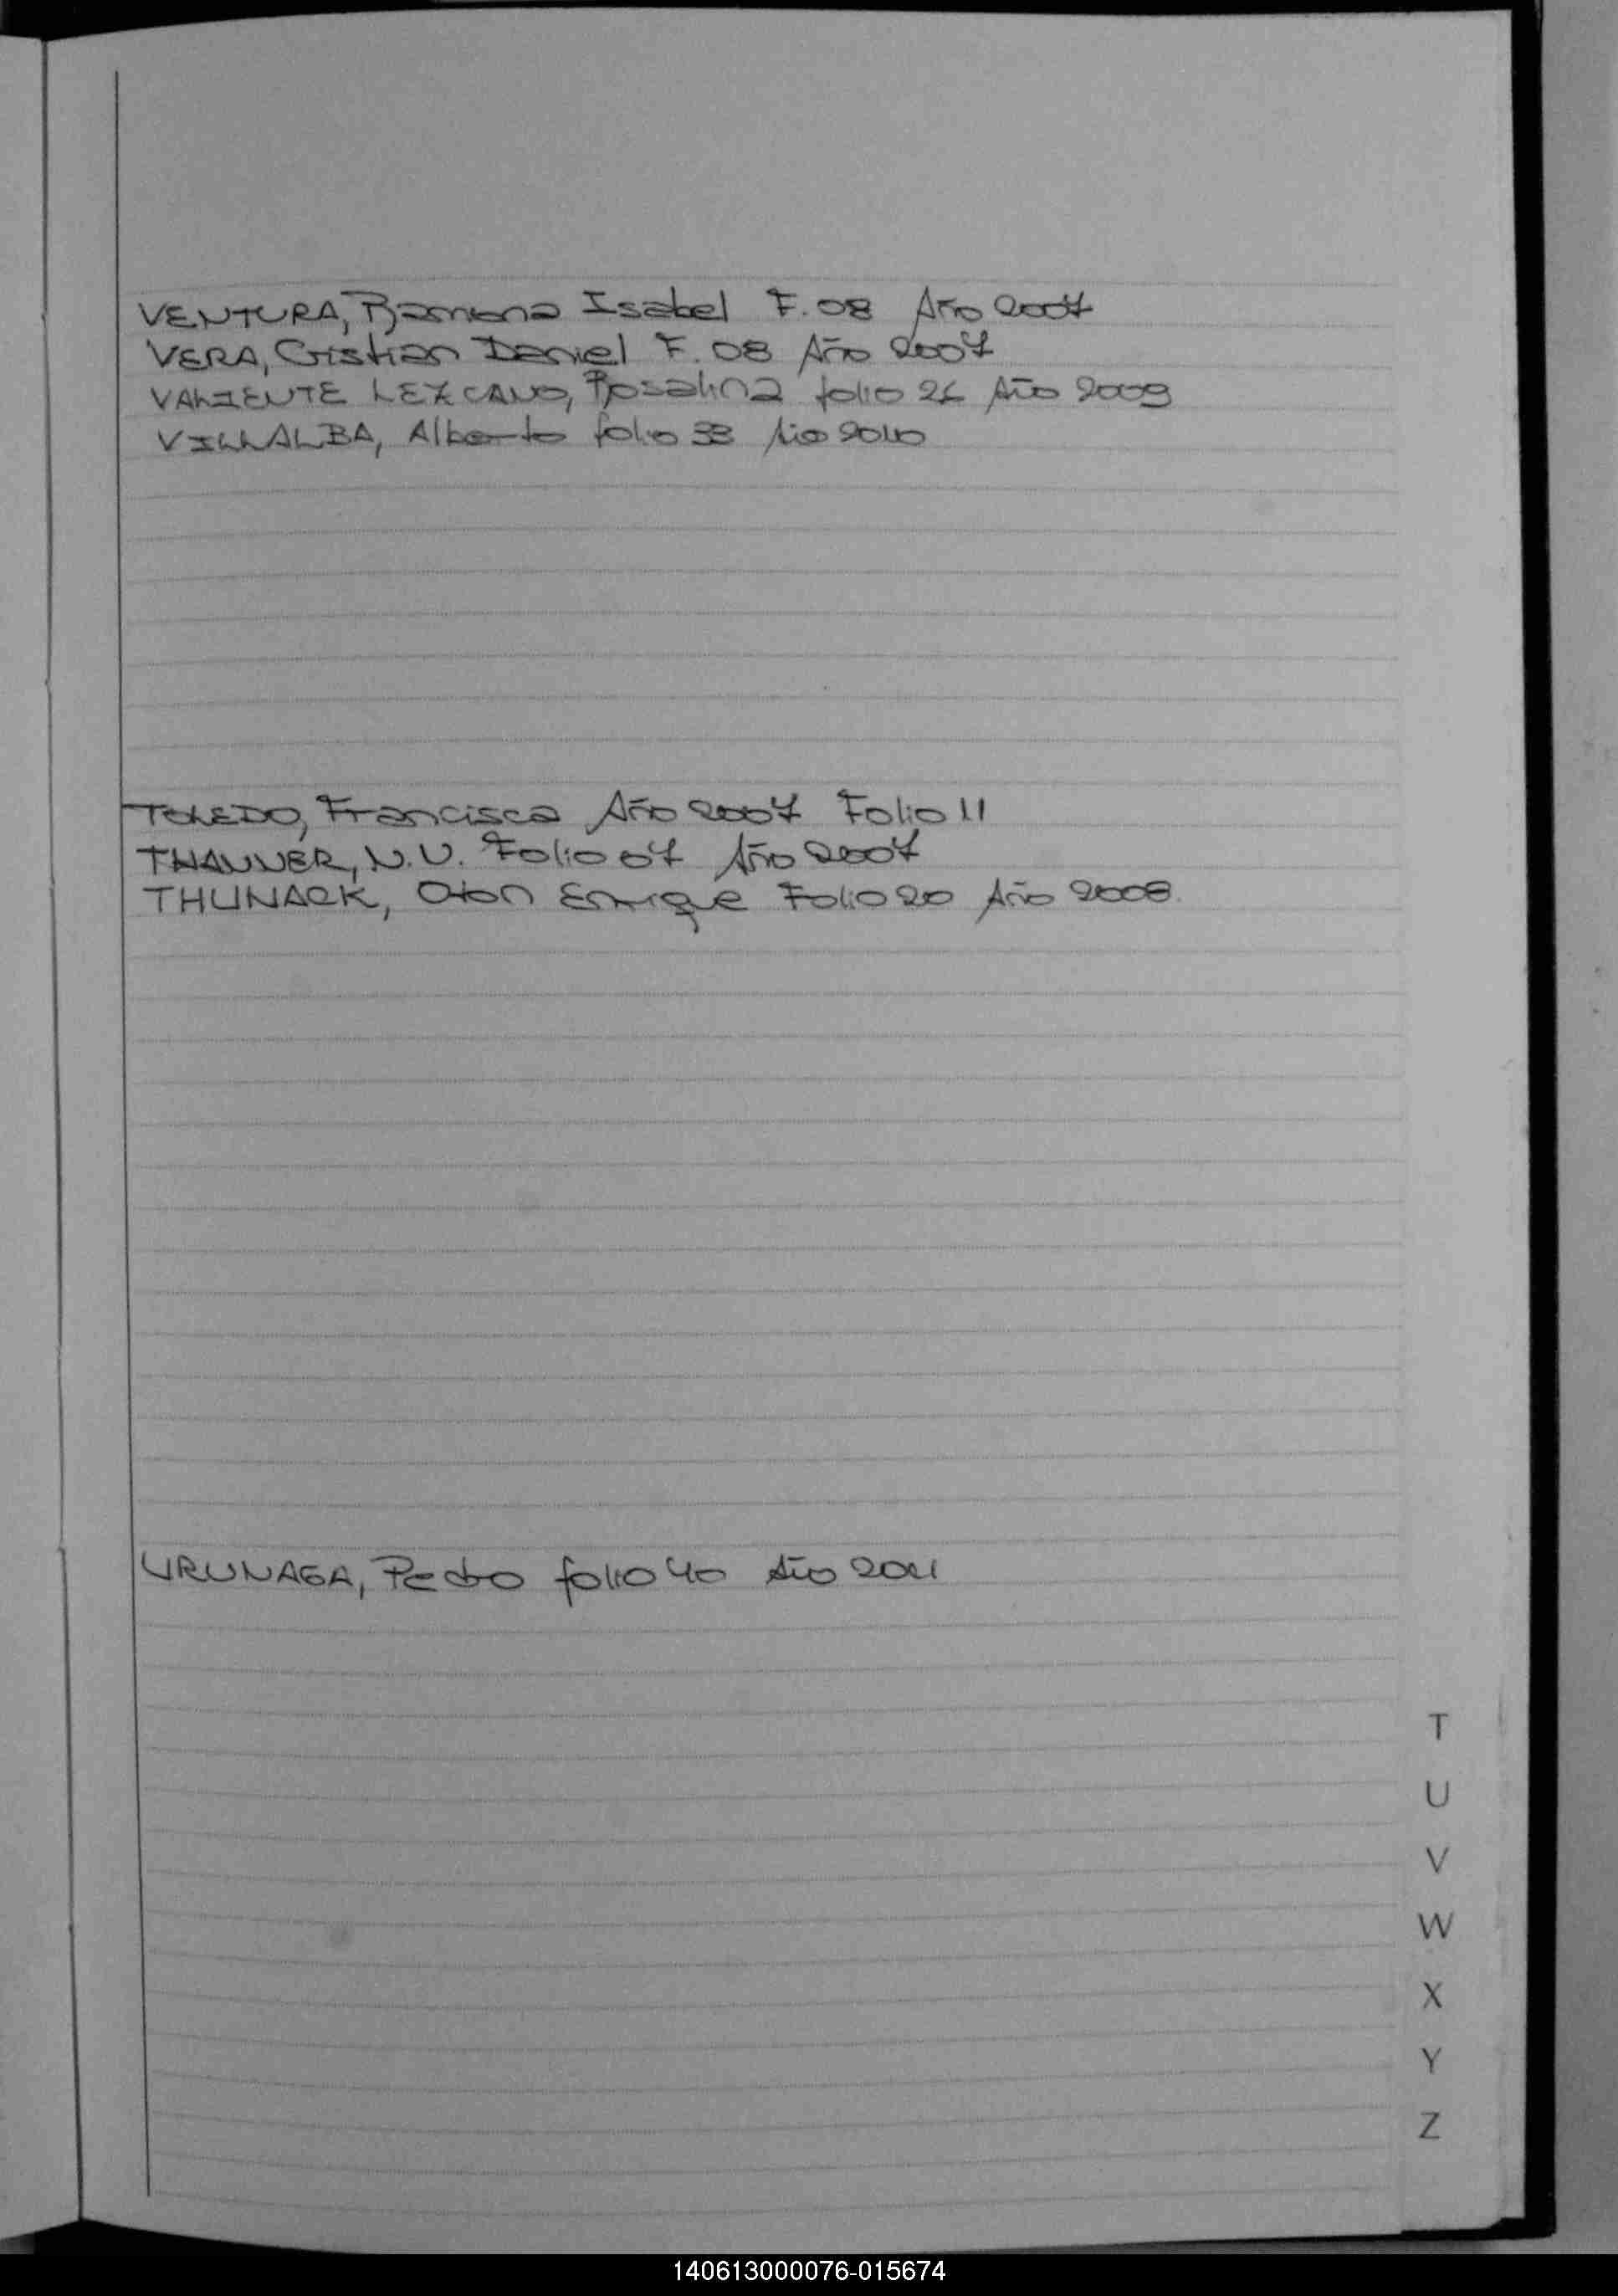 VENTURA, Ramona Isabel F. 08 Año 2007
VERA, Cristian Daniel F. 08 Año 2007
VALIENTE LEZCANO, Rosalina folio 26 Año 2009
VILLALBA, Alberto folio 33 Año 2010
TOLEDO, Francisca Año 2007 Folio 11
THANNER, N.N. Folio 07 Año 2007
THUNACK, Oton Enrique Folio 20 Año 2008.
URUNAGA, Pedro folio 40 Año 2011
T
U
V
W
X
Y
Z
140613000076-015674